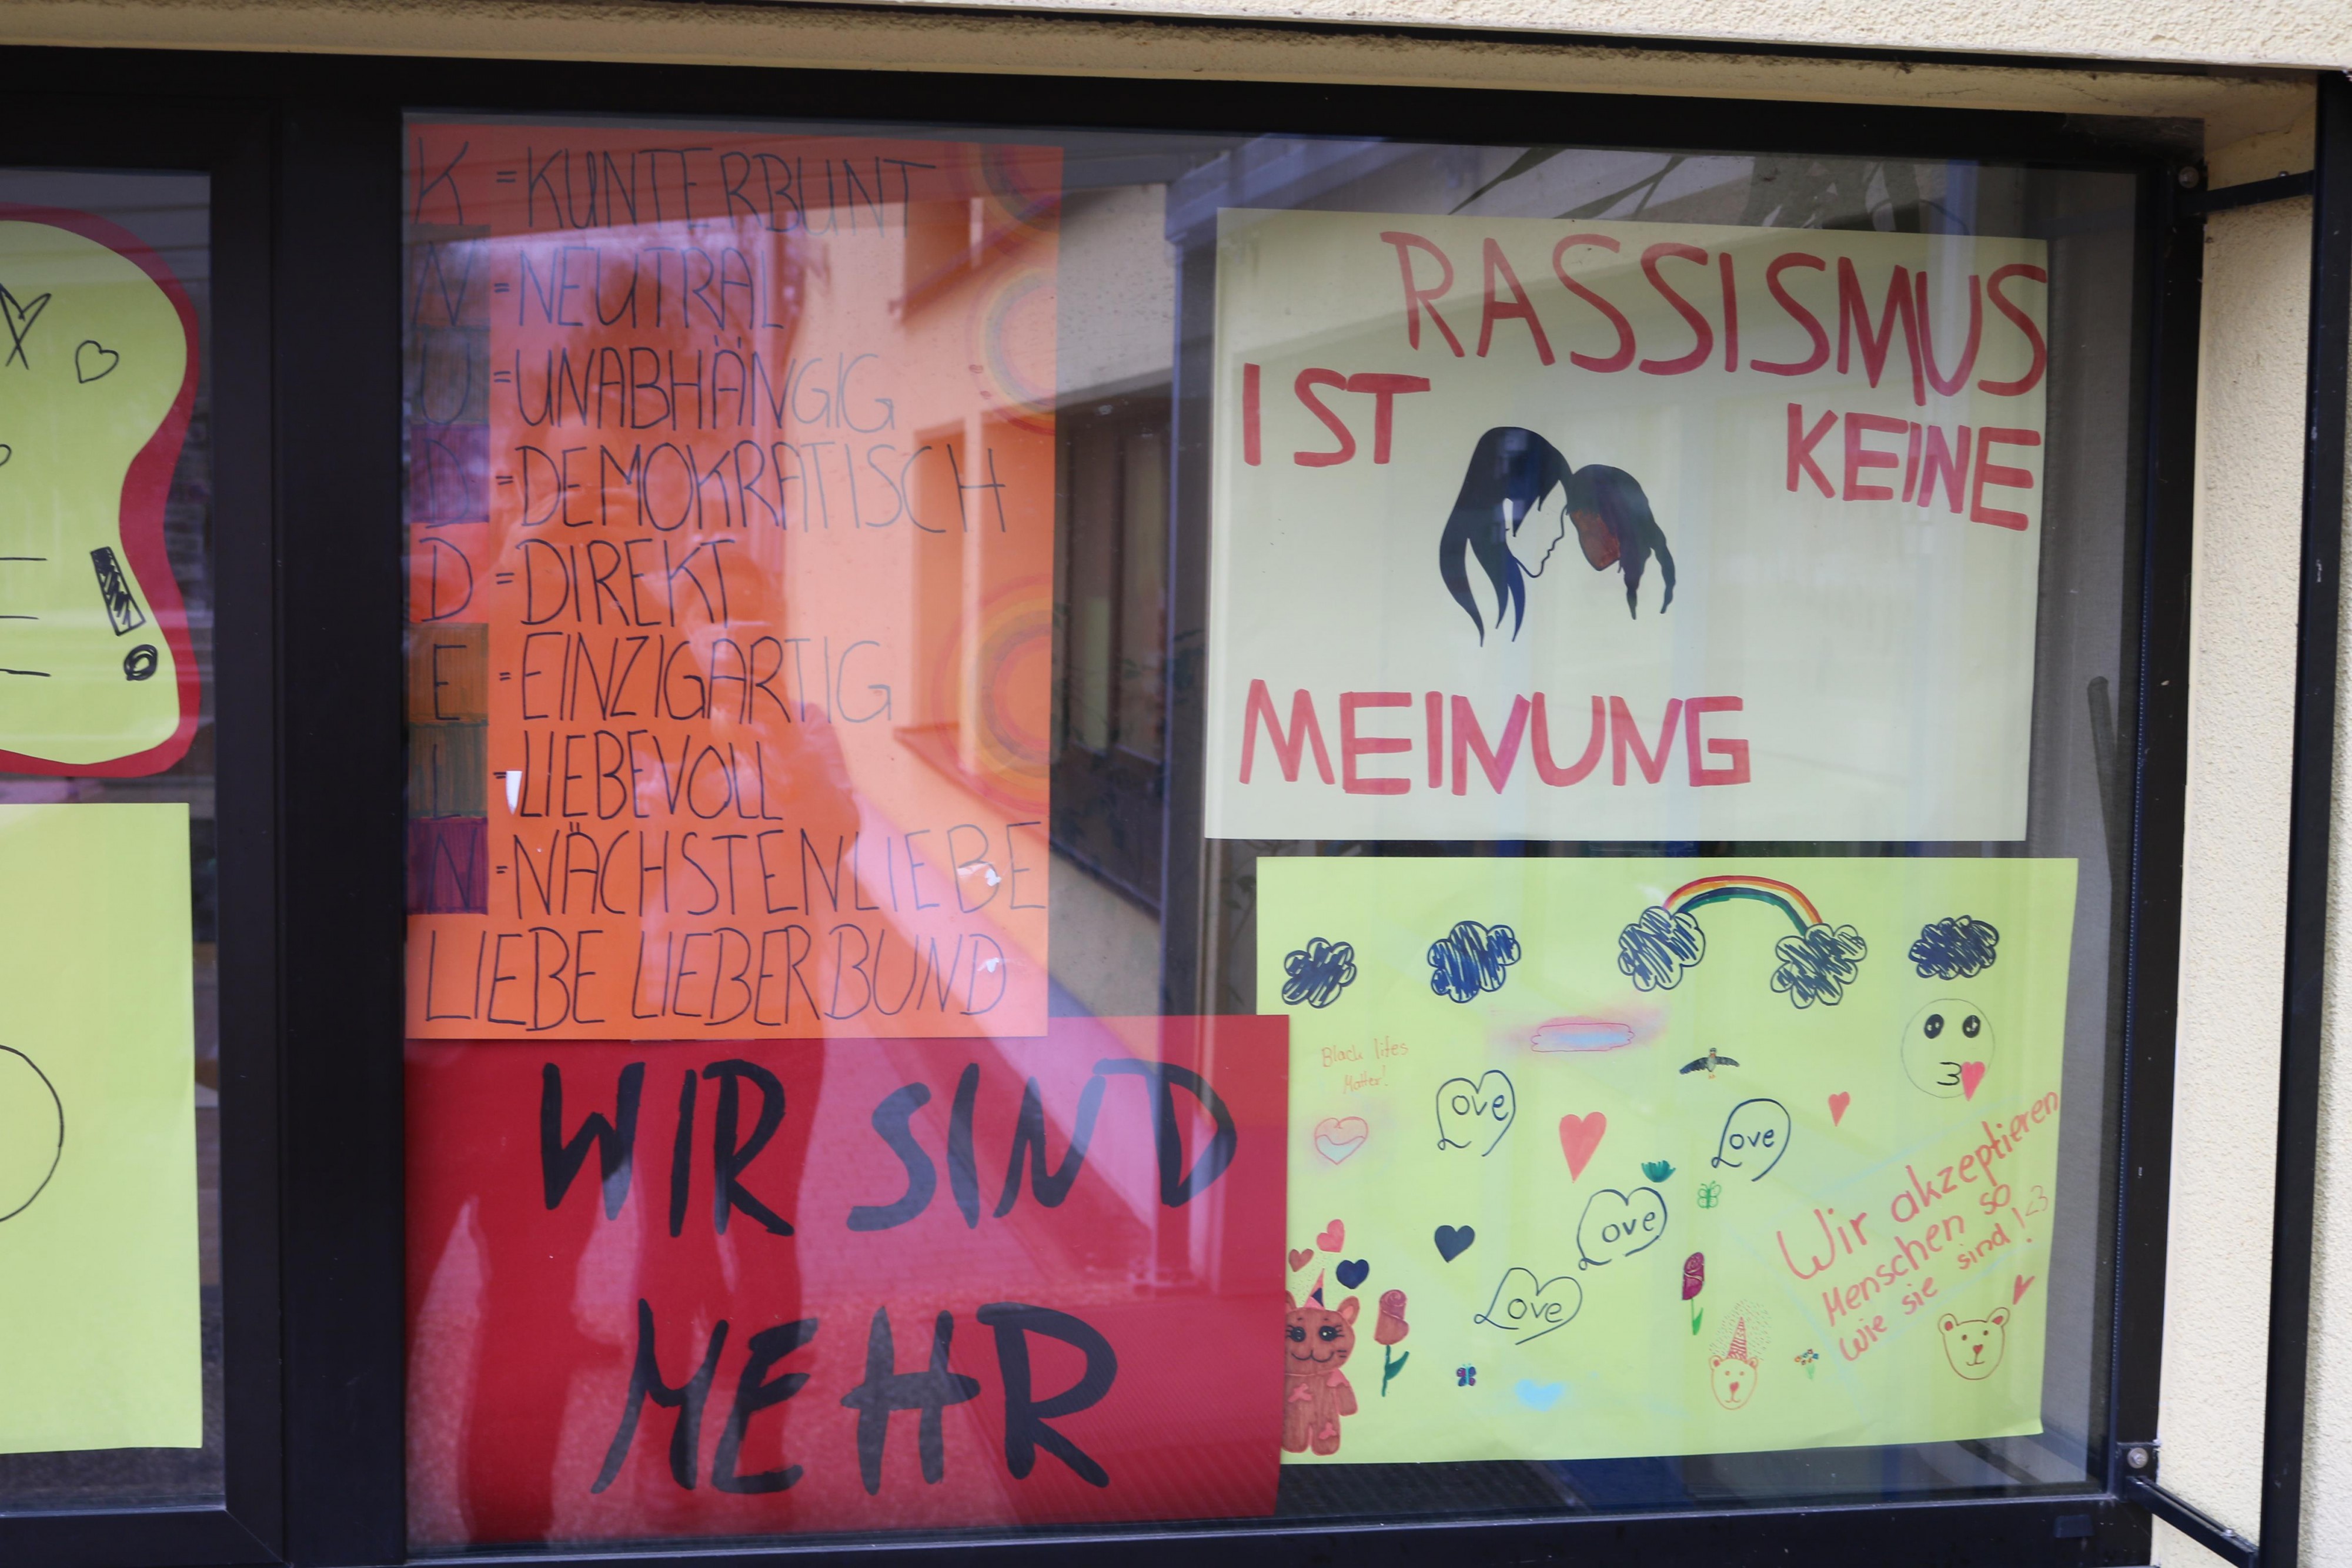 K = KUNTERBUNT
N = NEUTRAL
U = UNABHÄNGIG
D = DEMOKRATISCH
D = DIREKT
E = EINZIGARTIG
L = LIEBEVOLL
N = NÄCHSTENLIEBE
LIEBE LIEBER BUND
WIR SIND
MEHR
RASSISMUS
IST KEINE
MEINUNG
Black lifes
Matter!
Love
Love
Love
Love
Wir akzeptieren
Menschen so
wie sie sind! <3